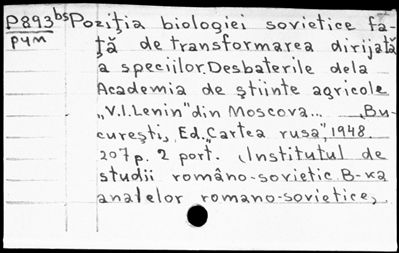 P893 bs Poziţia biologiei sovietice fa-
рум ţă de transformarea dirijată
a speciilor. Desbaterile dela
Academia de ştiinte agricole
„V.I.Lenin" din Moscova... „Bu-
cureşti, Ed. „Cartea rusa", 1948.
207 p. 2 port. (Institutul de
studii româno-sovietic B-ka
analelor romano-sovietice,